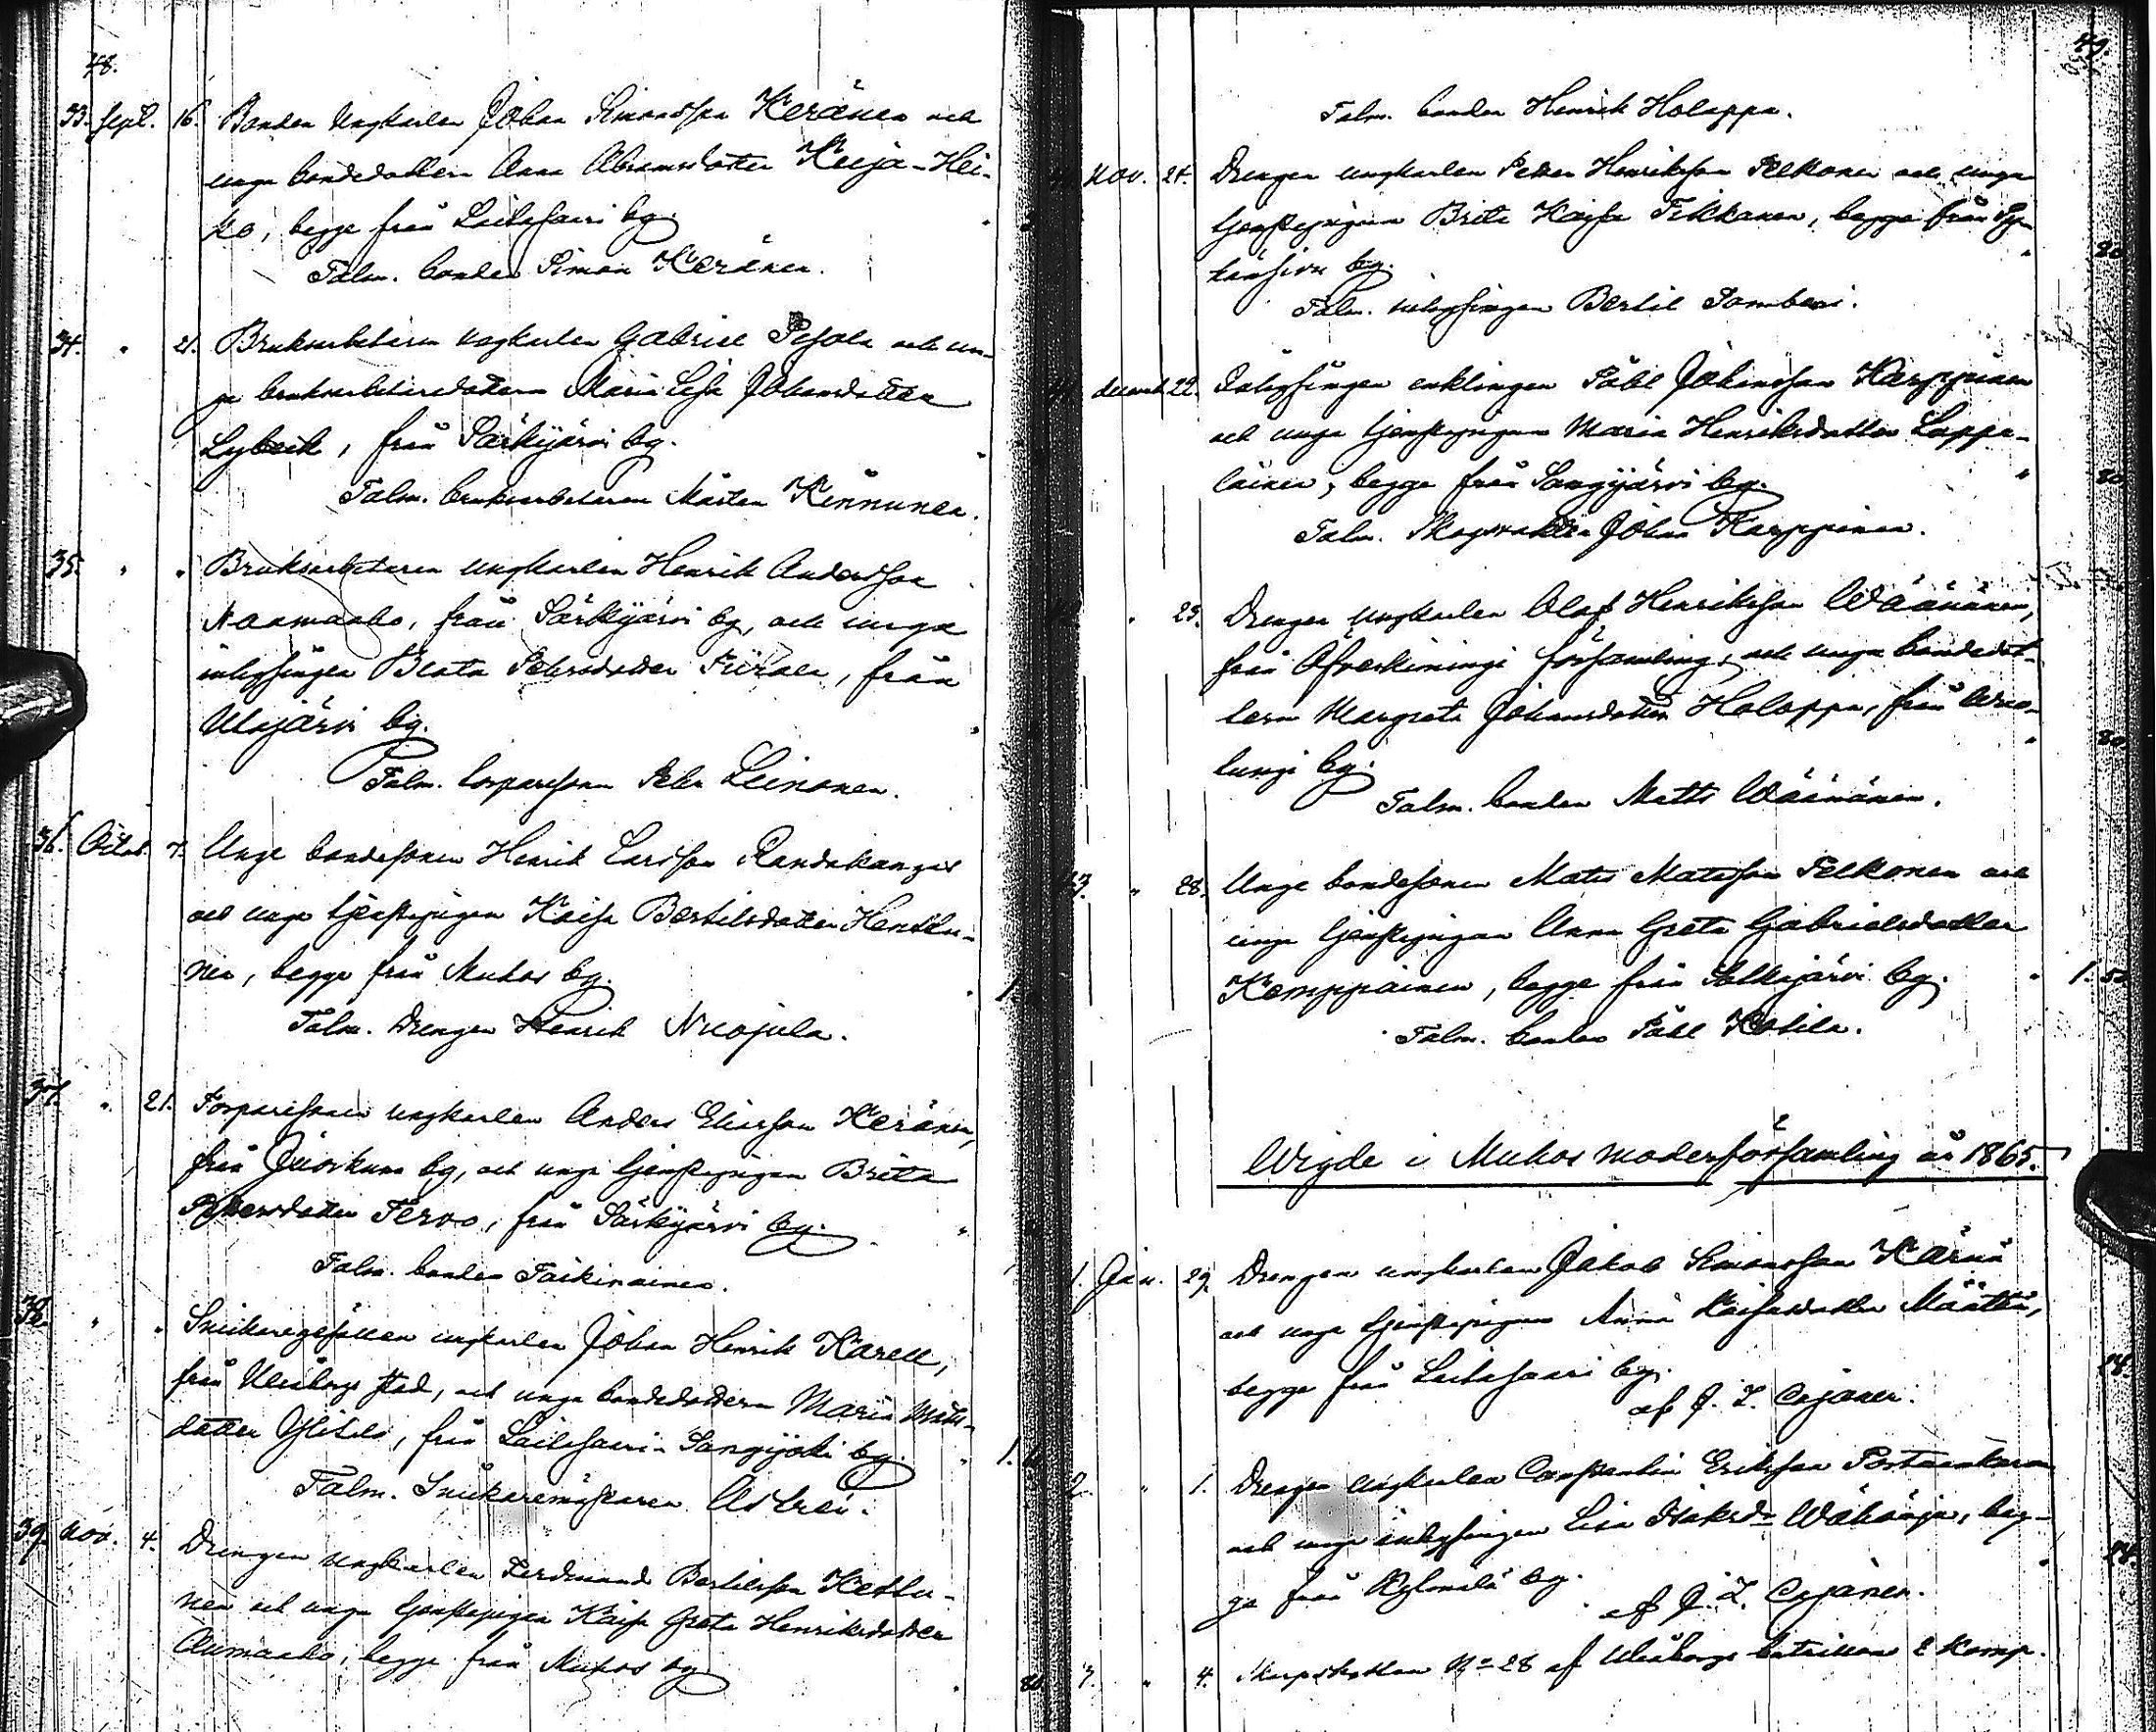 48.
33. Sept. 16. Bonden Ungkarlen Johan Simonsson Keränen och
unga bondedottern Anna Abramsdotter Keija-Hei-
ko, begge från Laitasaari by.
Talm. bonden Simon Keränen.
34. " 21. Bruksarbetaren ungkarlen Gabriel Pesola och un-
ga bruksarbetaredottern Maria Lisa Johansdotter
Lybeck, från Särkijärvi by.
Talm. bruksarbetaren Mårten Kinnunen.
35. " " Bruksarbetaren ungkarlen Henrik Andersson
Naamanko, från Särkijärvi by, och unga
inhysingen Beata Petersdotter, från
Utajärvi by.
Talm. torparesonen Peter Leinonen.
36. Octob. 7. Unge bondesonen Henrik Larsson Randakangas
och unga tjenstepigan Kaisa Bertilsdotter Henttu-
nen, begge från Muhos by.
Talm. Drengen Henrik Nuojula.
37. " 21. Torparesonen ungkarlen Anders Eliasson Keränen,
från by, och unga tjenstepigan Brita
Pettersdotter Tervo, från Särkijärvi by.
Talm. bonden Taikinainen.
38. " " Snickaregesällen ungkarlen Johan Henrik Karell,
från Uleåborgs stad, och unga bondedottern Maria Mats-
dotter Ylitalo, från Laitasaari-Sangijoki by. 1.
Talm. Snickaremästaren
39. Nov. 4. Drengen ungkarlen Ferdinand Bertilsson Kettu-
nen och unga tjenstepigan Kaisa Greta Henriksdotter
Aumanko, begge från Muhos by. 80
49.
Talm. bonden Henrik Holappa.
Nov. 24. Drengen ungkarlen Petter Henriksson Pelkonen och unga
tjenstepigan Brita Kajsa Tikkanen, begge från
by. 80
Talm. inhysingen Bertil
decemb. 22. Inhysingen enklingen Påhl Johansson Karppinen
och unga tjenstepigan Maria Henriksdotter Lappa-
lainen, begge från Sangijärvi by. 80
Talm. Skogvakten Johan Karppinen.
" 23. Drengen ungkarlen Olof Henriksson Wäänänen,
från Öfverkiminge församling, och unga bondedot-
tern Margreta Johansdotter Holappa, från
by. 80
Talm. bonden Matts Wäänänen.
43. " 28. Unge bondesonen Mats Matsson Pelkonen och
unga tjenstepigan Anna Greta Gabrielsdotter
Kemppainen, begge från by. 1. 50
Talm. bonden Påhl Kotila.
Wigde i Muhos moderförsamling år 1865.
1. Jan. 29. Drengen ungkarlen Jakob Simonsson Kärnä
och unga tjenstepigan Anna Määttä,
begge från Laitasaari by.
af J. F. Cajaner.
2. " 1. Drengen ungkarlen Constantin Eriksson
och unga inhysingen Lisa Isaksdr beg-
ge från Kylmälä by.
af J. F. Cajaner.
3. " 4. Skarpskytten No 28 af Uleåborgs bataillon 2 komp.